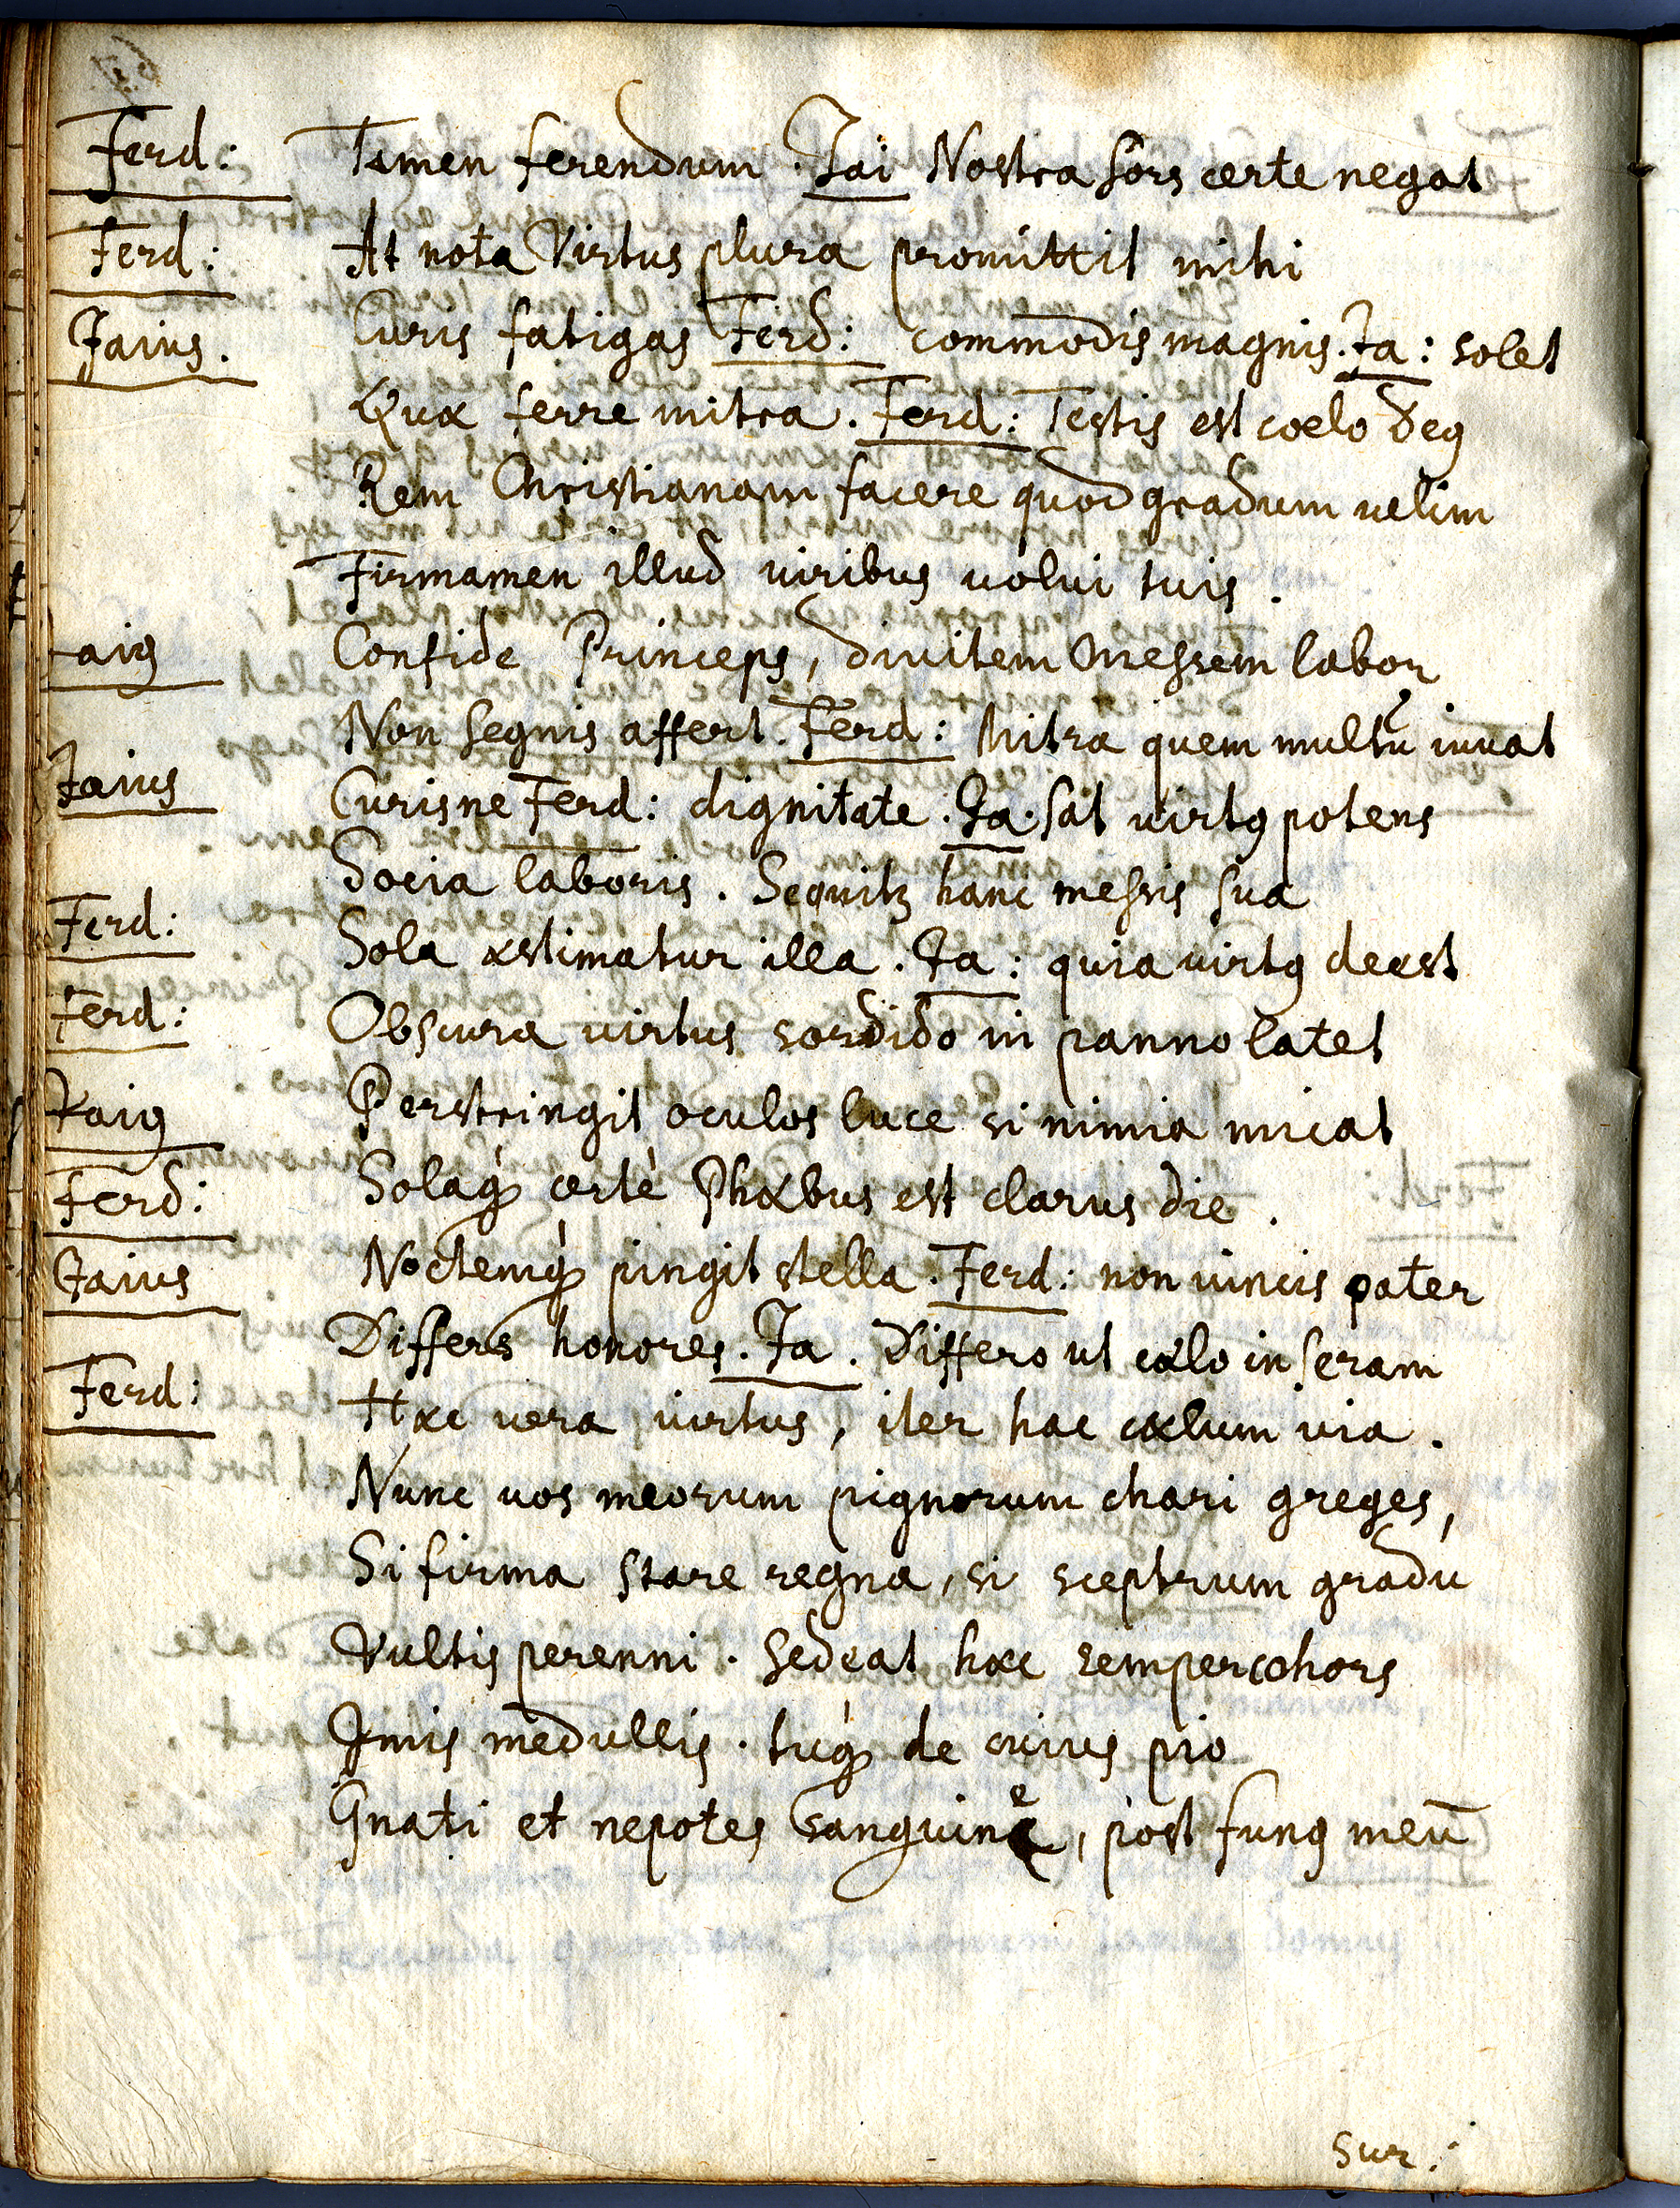 Ferd: Tamen ferendum. Jai Nostra sors certe negat
Ferd: At nota Virtus plura promittit mihi
Jaius. Curis fatigas Ferd: commodis magnis. Ja: solet
Quæ ferre mitra. Ferd: Testis est coelo Deꝰ
Rem Christianam facere quod gradum velim
Firmamen illud viribus volui tuis.
Jaiꝰ Confide Princeps, divitem Messem labor
Non segnis affert. Ferd: Mitra quem multū iuvat
Jaius Curisne Ferd: dignitate. Ja. sat virtꝰ potens
Socia laboris. Sequitꝛ hanc messis sua
Ferd: Sola æstimatur illa. Ja: quia virtꝰ deest
Ferd: Obscura virtus sordido in panno latet
Jaiꝰ Perstringit oculos luce si nimia micat
Ferd: Solaq́ꝫ certè Phæbus est clarus die.
Jaius Noctemq́ꝫ pingit stella. Ferd: non vincis pater
Differs honores. Ja. Differo ut cælo inseram
Ferd: Hæc vera virtus, iter hac cælum via.
Nunc vos meorum pignorum chari greges,
Si firma stare regna, si sceptrum gradū
Vultis perenni. sedeat hæc semper cohors
Imis medullis. tuq́ꝫ de cuius pio
Gnati et nepotes sanguine, post funꝰ meū
Sur: